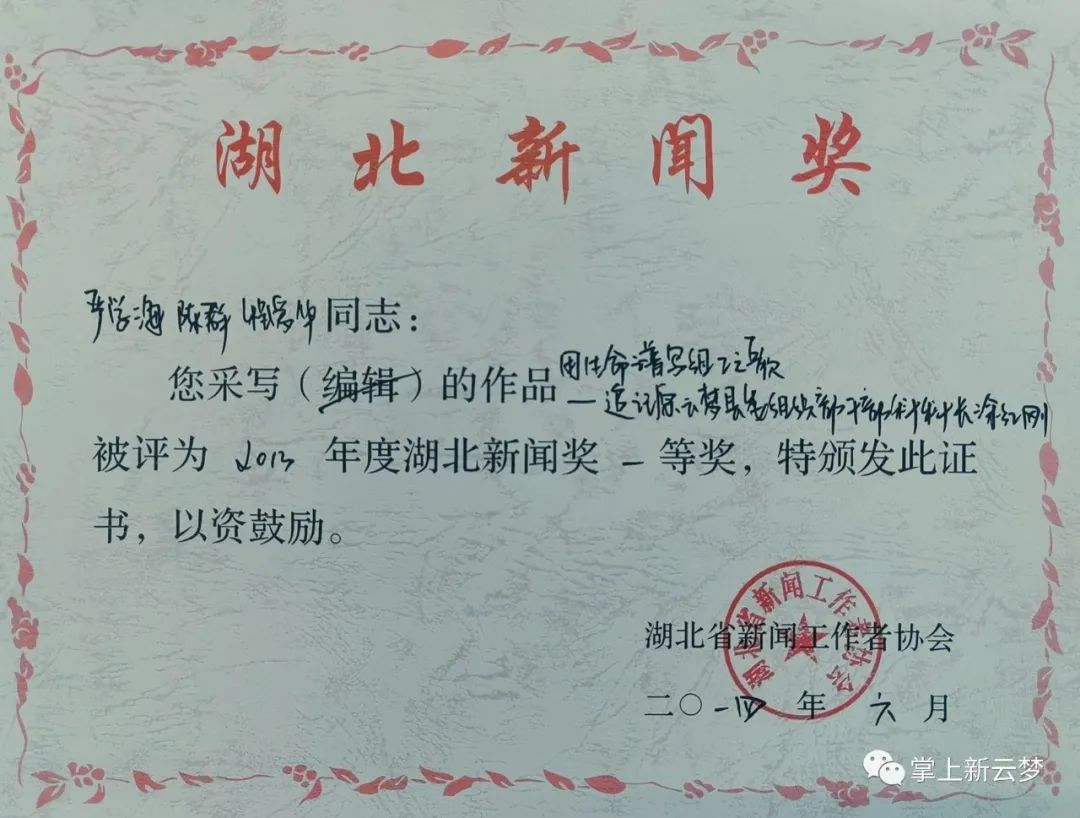 湖北新闻奖
严学海 陈群 程爱华 同志：
您采写（编辑）的作品 用生命谱写组工之歌
—追记原云梦县委组织部干部科科长涂红刚
被评为 2013 年度湖北新闻奖 一 等奖，特颁发此证
书，以资鼓励。
湖北省新闻工作者协会
湖北省新闻工作者协会
二〇一四 年 六 月
掌上新云梦